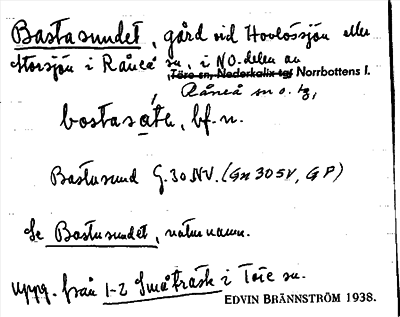 Bastusundet, gård vid Hovlössjön eller
Storsjön i Råneå sn, i NO.delen av
Töre sn, Nederkalix tg Norrbottens l.
Råneå sn o.
bostasáte, bf. n.
Bastusund G.30.NV. (Gn 305V, GP)
Se Bastusundet, naturnamn.
uppg. från 1-2 Småträsk i Töre sn.
EDVIN BRÄNNSTRÖM 1938.